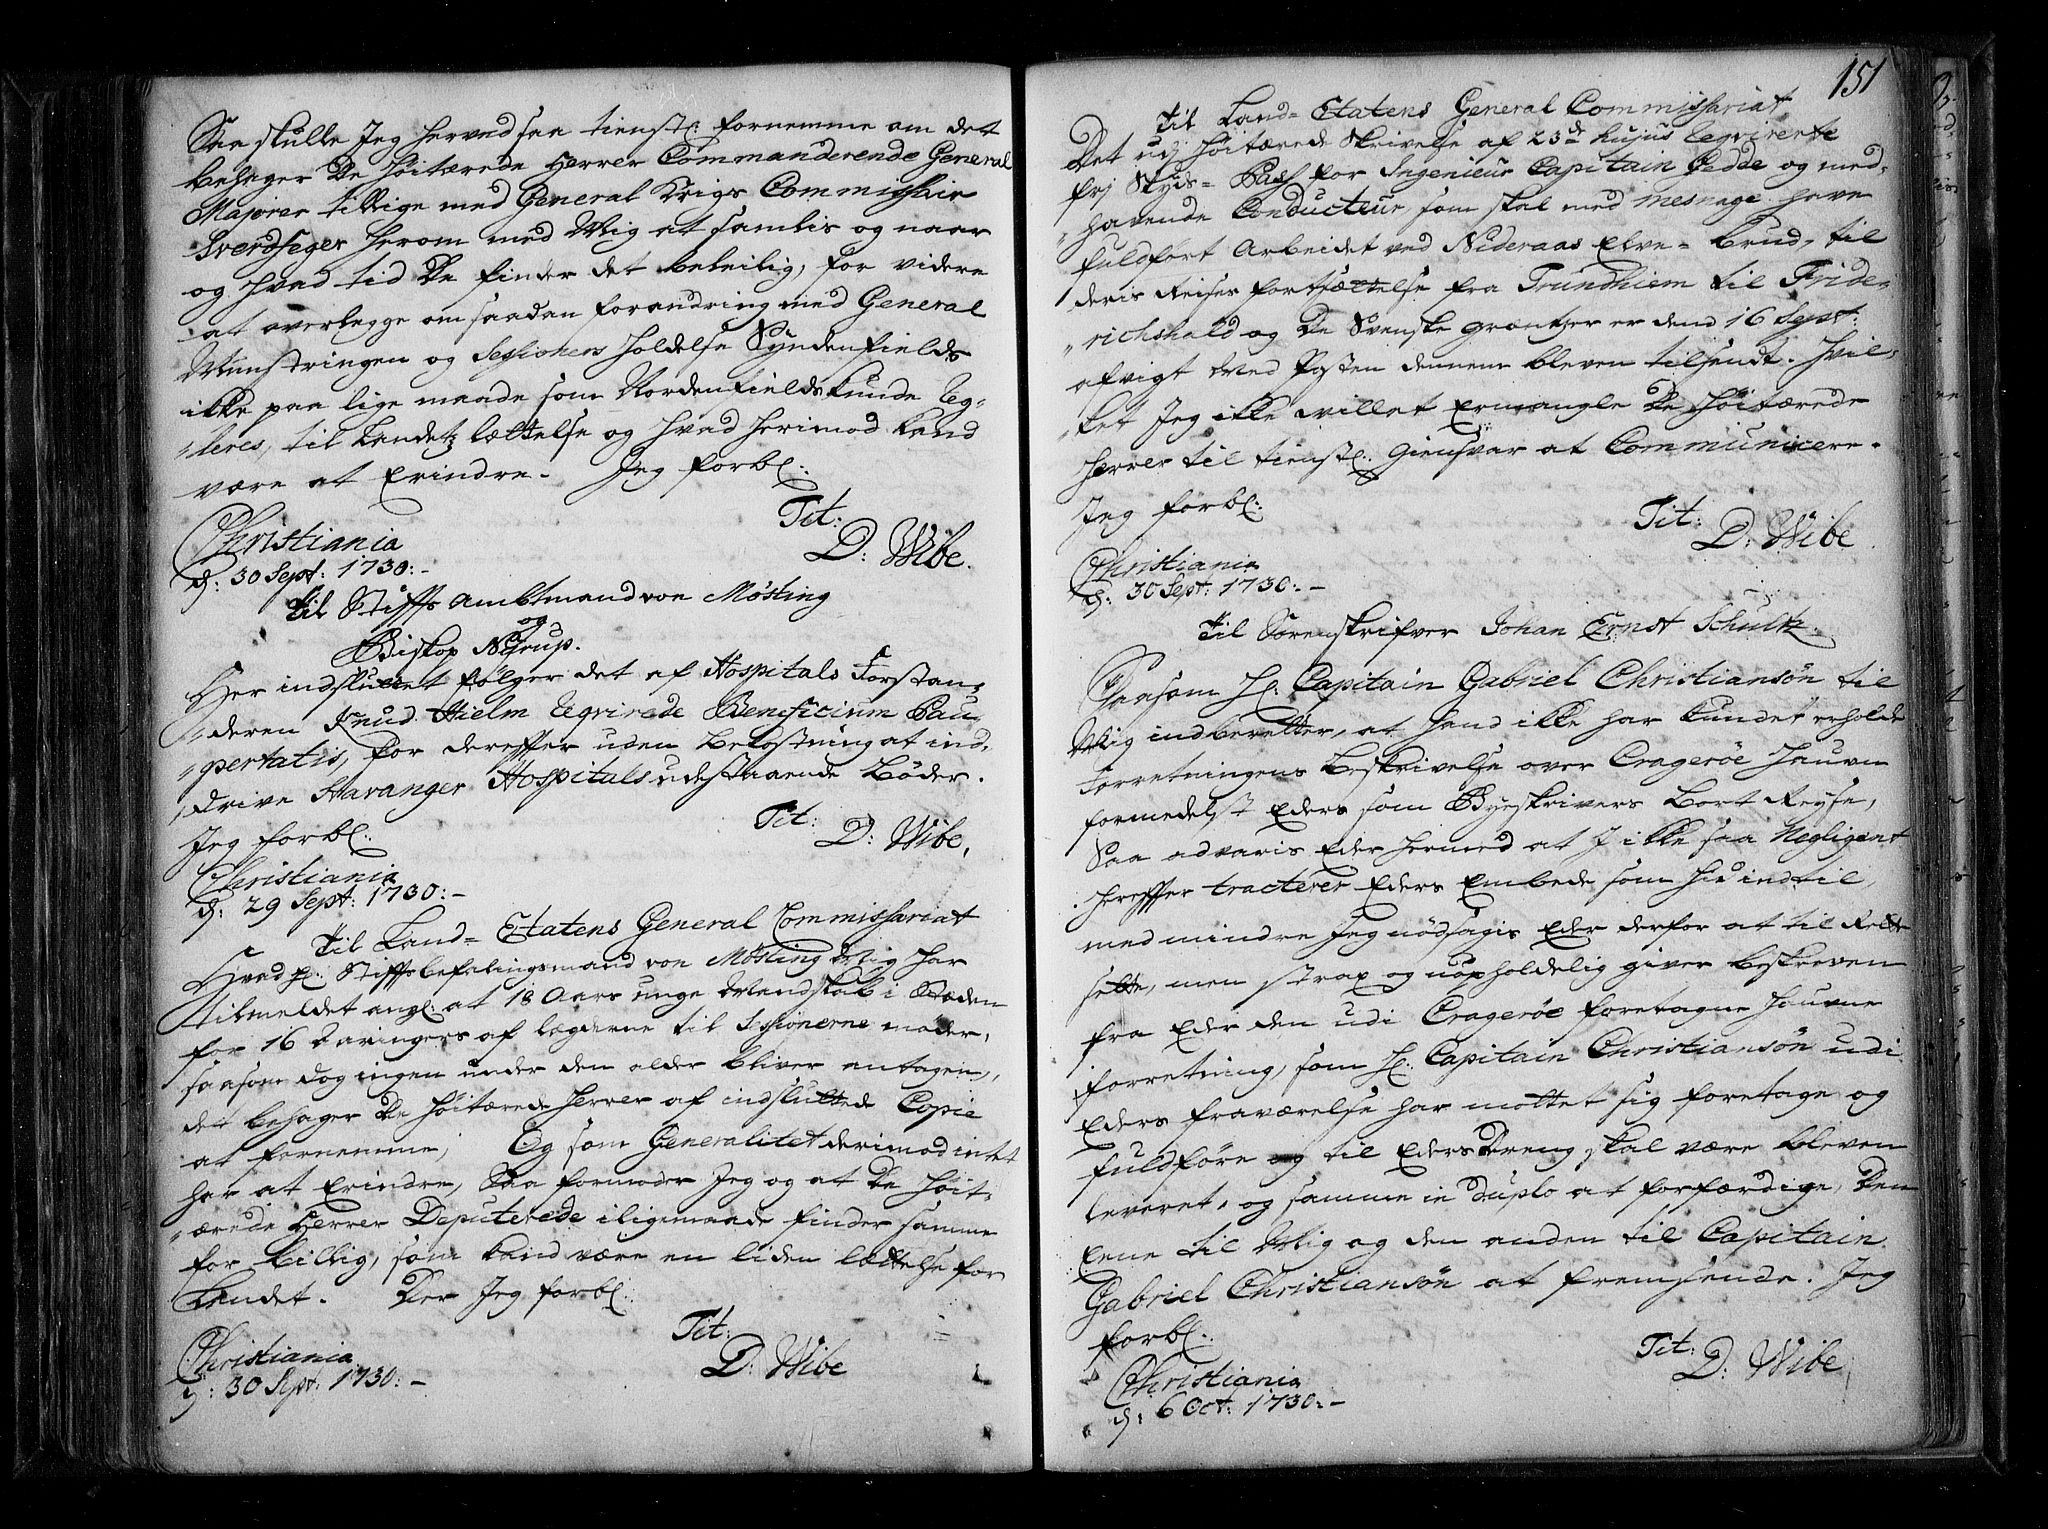 Saa skulle Jeg herved saa tienstl: fornemme om det
behager De Høitærede Herrer Commanderende General
Majorer tillige med General Krigs Commissair
Sverdfeger herom med Mig at samlis og naar
og hvad tid De finder det beleilig, for videre
at overlegge om saadan forandring med General
Mynstringen og Sessionens holdelse Syndenfields
ikke paa lige maade som Nordenfields kunde Reg-
"leres, til Landetz lættelse og hvad herimod kand
være at Erindre. Jeg forbl:
Tit:
D: Wibe.
Christiania
d: 30 Sept: 1730:-
Til Stiffts Ambtmand von Møsting
og
Biskop Nyrup.
Her indsluttet følger det af Hospitals Forstan-
"deren Knud Hielm Reqvirede Beneficium Pau-
"pertatis, for dereffter uden bekostning at ind-
"drive Stavanger Hospitals udestaaende Bøder.
Jeg forbl:
Tit:
D: Wibe,
Christiania
d: 29 Sept: 1730:-
Til Land-Etatens General Commissariat
Hvad Hr: Stifftsbefalingsmand von Møsting Mig har
tilmeldet angl: at 18 Aars unge Mandskab i Stæden
for 16 Aaringers af lægderne til Sessionerne møder,
saasom dog ingen under den alder bliver antagen,
det behager De Høitærede Herrer af indsluttede Copie
at fornemme; Og som Generalitet derimod intet
har at Erindre, Saa formoder Jeg og at De Høit-
"ærede Herrer Deputerede iligemaade finder samme
for billig, som kand være en liden lættelse for
Landet. Der Jeg forbl:
Tit:
D: Wibe
Christiania
d: 30 Sept: 1730:-
151
Til Land-Etatens General Commissariat
Det udj Høitærede Skrivelse af 23de hujus Reqvirerte
frj Skyds-Pass for Ingenieur Capitain Gedde og med-
"havende Conducteur, som skal med mesnage have
fuldført Arbeidet ved Nideraas Elve-brud, til
deris Reises fortsættelse fra Trundhiem til Fride-
"richshald og De Svenske Grændtzer er dend 16 Sept:
afvigt med Posten dennem bleven tilsendt. Hvil-
"ket Jeg ikke willet Ermangle De Høitærede
Herrer til tienstl: Giensvar at Communicere.
Jeg forbl:
Tit:
D: Wibe
Christiania
d: 30 Sept: 1730:-
Til Sorenskrifver Johan Ernst Schultz.
Saasom Hr: Capitain Gabriel Christiansøn til
Mig indberetter, at hand ikke har kundet erholde
Forretningens beskrivelse over Cragerøe Hauvn
formedelst Eders som Byeskrivers bort Reyse,
Saa advaris Eder hermed at I ikke saa Negligent
hereffter tracterer Eders Embede som hid indtil,
med mindre Jeg nødsagis Eder derfor at til Rette
sette, men strax og uopholdelig giver beskreven
fra Eder den udi Cragerøe foretagne Hauvne
forretning, som Hr: Capitain Christiansøn udi
Eders fraværelse har mottet sig foretage og
fuldføre og til Eders Dreng skal være bleven
leveret, og samme in duplo at forfærdige, Den
Eene til Mig og den anden til Capitain
Gabriel Christiansøn at fremsende. Jeg
forbl:
Tit:
D: Wibe
Christiania
d: 6 Oct: 1730:-